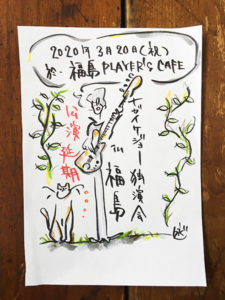 2020年3月20日(祝)
於.福島PLAYER'S CAFE
ナガイケジョー独演会
in
福島
公演延期